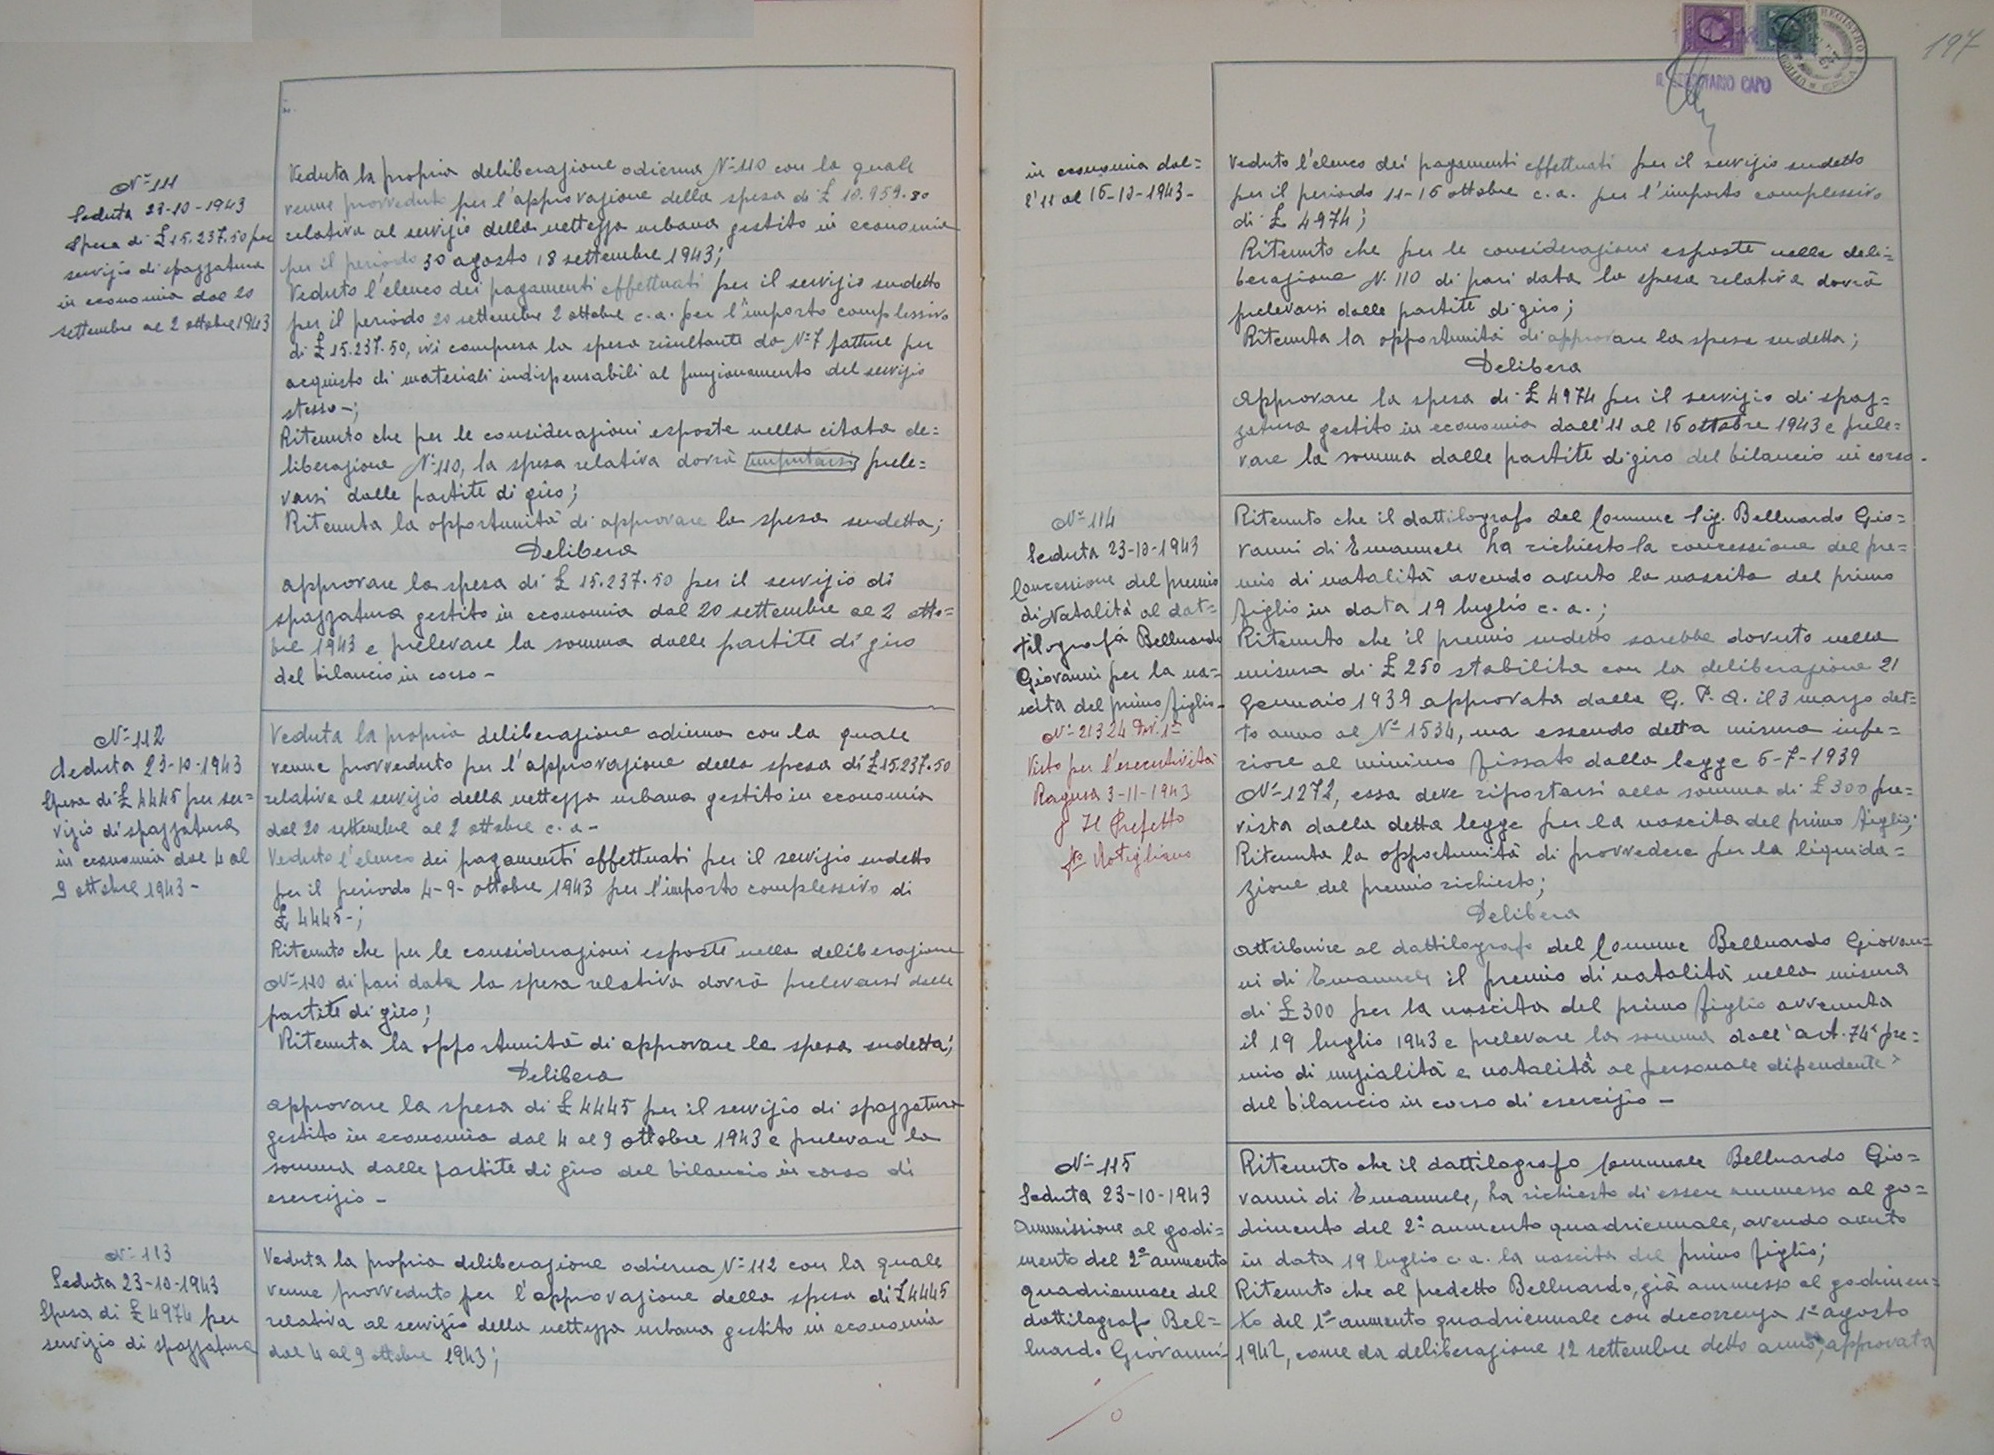 Nº 111
Seduta 23-10-1943
Spesa di £ 15.237.50 per
servizio di spazzatura
in economia dal 20
settembre al 2 ottobre 1943
Veduta la propria deliberazione odierna Nº 110 con la quale
venne provveduto per l'approvazione della spesa di £ 10.959.80
relativa al servizio della nettezza urbana gestito in economia
per il periodo 30 agosto 18 settembre 1943;
Veduto l'elenco dei pagamenti effettuati per il servizio sudetto
per il periodo 20 settembre 2 ottobre c.a. per l'importo complessivo
di £ 15.237.50, ivi compresa la spesa risultante da Nº 7 fatture per
acquisto di materiali indispensabili al funzionamento del servizio
stesso-;
Ritenuto che per le considerazioni esposte nella citata de=
liberazione Nº 110, la spesa relativa dovrà imputarsi prele=
varsi dalle partite di giro;
Ritenuta la opportunità di approvare la spesa sudetta;
Delibera
approvare la spesa di £ 15.237.50 per il servizio di
spazzatura gestito in economia dal 20 settembre al 2 otto=
bre 1943 e prelevare la somma dalle partite di giro
del bilancio in corso -
Nº 112
Seduta 23-10-1943
Spesa di £ 4445 per ser=
vizio di spazzatura
in economia dal 4 al
9 ottobre 1943 -
Veduta la propria deliberazione odierna con la quale
venne provveduto per l'approvazione della spesa di £ 15.237.50
relativa al servizio della nettezza urbana gestito in economia
dal 20 settembre al 2 ottobre c.a-
Veduto l'elenco dei pagamenti effettuati per il servizio sudetto
per il periodo 4-9- ottobre 1943 per l'importo complessivo di
£ 4445-;
Ritenuto che per le considerazioni esposte nella deliberazione
Nº 110 di pari data la spesa relativa dovrà prelevarsi dalle
partite di giro;
Ritenuta la opportunità di approvare la spesa sudetta;
Delibera
approvare la spesa di £ 4445 per il servizio di spazzatura
gestito in economia dal 4 al 9 ottobre 1943 e prelevare la
somma dalle partite di giro del bilancio in corso di
esercizio -
Nº 113
Seduta 23-10-1943
Spesa di £ 4974 per
servizio di spazzatura
Veduta la propria deliberazione odierna Nº 112 con la quale
venne provveduto per l'approvazione della spesa di £ 4445
relativa al servizio della nettezza urbana gestito in economia
dal 4 al 9 ottobre 1943;
197
IL SEGRETARIO CAPO
in economia dal=
l'11 al 16-10-1943-
Veduto l'elenco dei pagamenti effettuati per il servizio sudetto
per il periodo 11-16 ottobre c.a. per l'importo complessivo
di £ 4974;
Ritenuto che per le considerazioni esposte nella deli=
berazione N. 110 di pari data la spesa relativa dovrà
prelevarsi dalle partite di giro;
Ritenuta la opportunità di approvare la spesa sudetta;
Delibera
Approvare la spesa di £ 4974 per il servizio di spaz=
zatura gestito in economia dall'11 al 16 ottobre 1943 e prele=
vare la somma dalle partite di giro del bilancio in corso.
Nº 114
Seduta 23-10-1943
Concessione del premio
di Natalità al dat=
tilografo Belluardo
Giovanni per la na=
scita del primo figlio-
Nº 21324 Div. 1ª
Visto per l'esecutività
Ragusa 3-11-1943
p Il Prefetto
Ritenuto che il dattilografo del Comune Sig. Belluardo Gio=
vanni di Emanuele ha richiesto la concessione del pre=
mio di natalità avendo avuto la nascita del primo
figlio in data 19 luglio c.a.;
Ritenuto che il premio sudetto sarebbe dovuto nella
misura di £ 250 stabilita con la deliberazione 21
Gennaio 1939 approvata dalla G. P. A. il 3 marzo det=
to anno al Nº 1534, ma essendo detta misura infe=
riore al minimo fissato dalla legge 6-7-1939
Nº 1272, essa deve riportarsi alla somma di £ 300 pre=
vista dalla detta legge per la nascita del primo figlio;
Ritenuta la opportunità di provvedere per la liquida=
zione del premio richiesto;
Delibera
attribuire al dattilografo del Comune Belluardo Giovan=
ni di Emanuele il premio di natalità nella misura
di £ 300 per la nascita del primo figlio avvenuta
il 19 luglio 1943 e prelevare la somma dall'art. 74 "pre=
mio di nuzialità e natalità al personale dipendente"
del bilancio in corso di esercizio -
Nº 115
Seduta 23-10-1943
Ammissione al godi=
mento del 2º aumento
quadriennale del
dattilografo Bel=
luardo Giovanni-
Ritenuto che il dattilografo Comunale Belluardo Gio=
vanni di Emanuele, ha richiesto di essere ammesso al go=
dimento del 2º aumento quadriennale, avendo avuto
in data 19 luglio c.a. la nascita del primo figlio;
Ritenuto che al predetto Belluardo, già ammesso al godimen=
to del 1º aumento quadriennale con decorrenza 1º agosto
1942, come da deliberazione 12 settembre detto anno, approvata